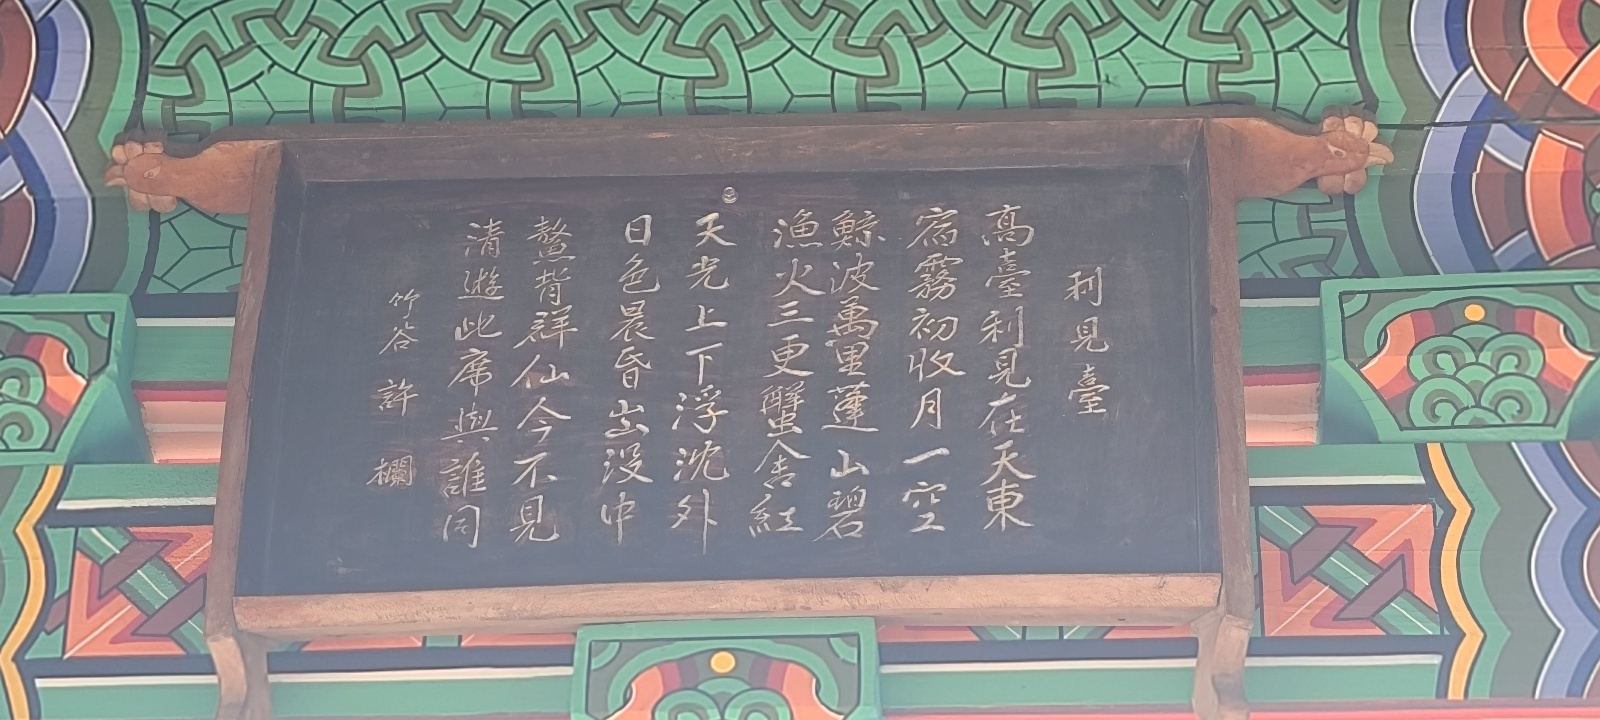 利見臺
高臺利見在天東
宿霧初收月一空
鯨波萬里蓬山碧
漁火三更蟹舍紅
天光上下浮沈外
日色晨昏出没中
鰲背群仙今不見
清遊此席與誰同
竹谷 許 欄